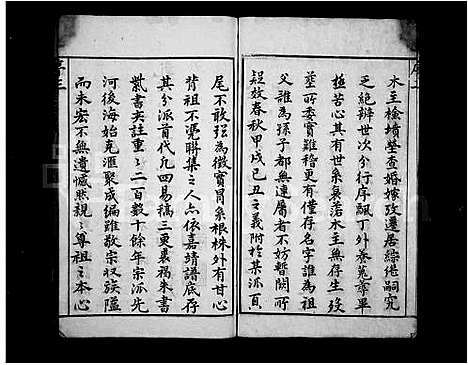 木主檢墳塋查婚嫁攷遷居綜繼嗣究
乏絕辨世次分行序飄丁外養蒐葬畢
極苦心其有世系裊落水主無存生歿
塟所委實難稽更有僅存名字誰為祖
父誰為孫子都無連屬者不妨暫闕所
疑效春秋甲戌己丑之義附於某派頁
尾不敢强為徵實冒系根株外有甘心
背祖不憑聯集之人亦依嘉靖譜底存
其分派首代凡四易稿三更襄褐朱書
紫書夾註重々二百數十餘年宗派先
河後海始克滙聚成編雖敬宗收族隘
而未宏不無遺憾然親々尊祖之本心
序三